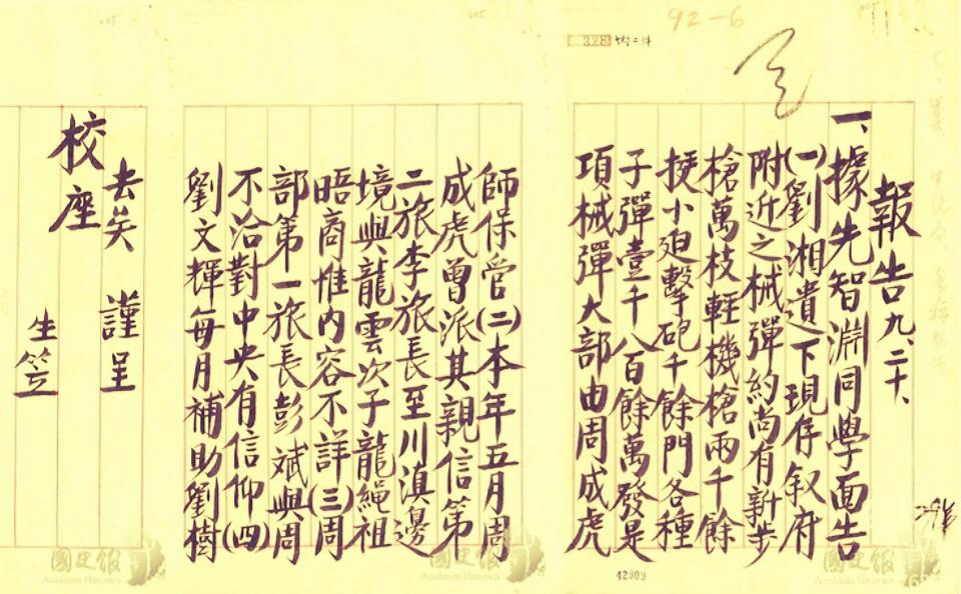 92-6
328
報告 九、二十、
一、據先智淵同學面告
(一)劉湘遺下現存叙府
附近之械彈約尚有新步
槍萬枝輕機槍兩千餘
挺小廹擊砲千餘門各種
子彈壹千八百餘萬發是
項械彈大部由周成虎
42909
師保管(二)本年五月周
成虎曾派其親信第
二旅李旅長至川滇邊
境與龍雲次子龍繩祖
晤商惟內容不詳(三)周
部第一旅長彭斌與周
不洽對中央有信仰(四)
劉文輝每月補助劉樹
去矣 謹呈
校座
生笠
國史館
Academia Historica
國史館
Academia Historica
國史館
Academia Historica